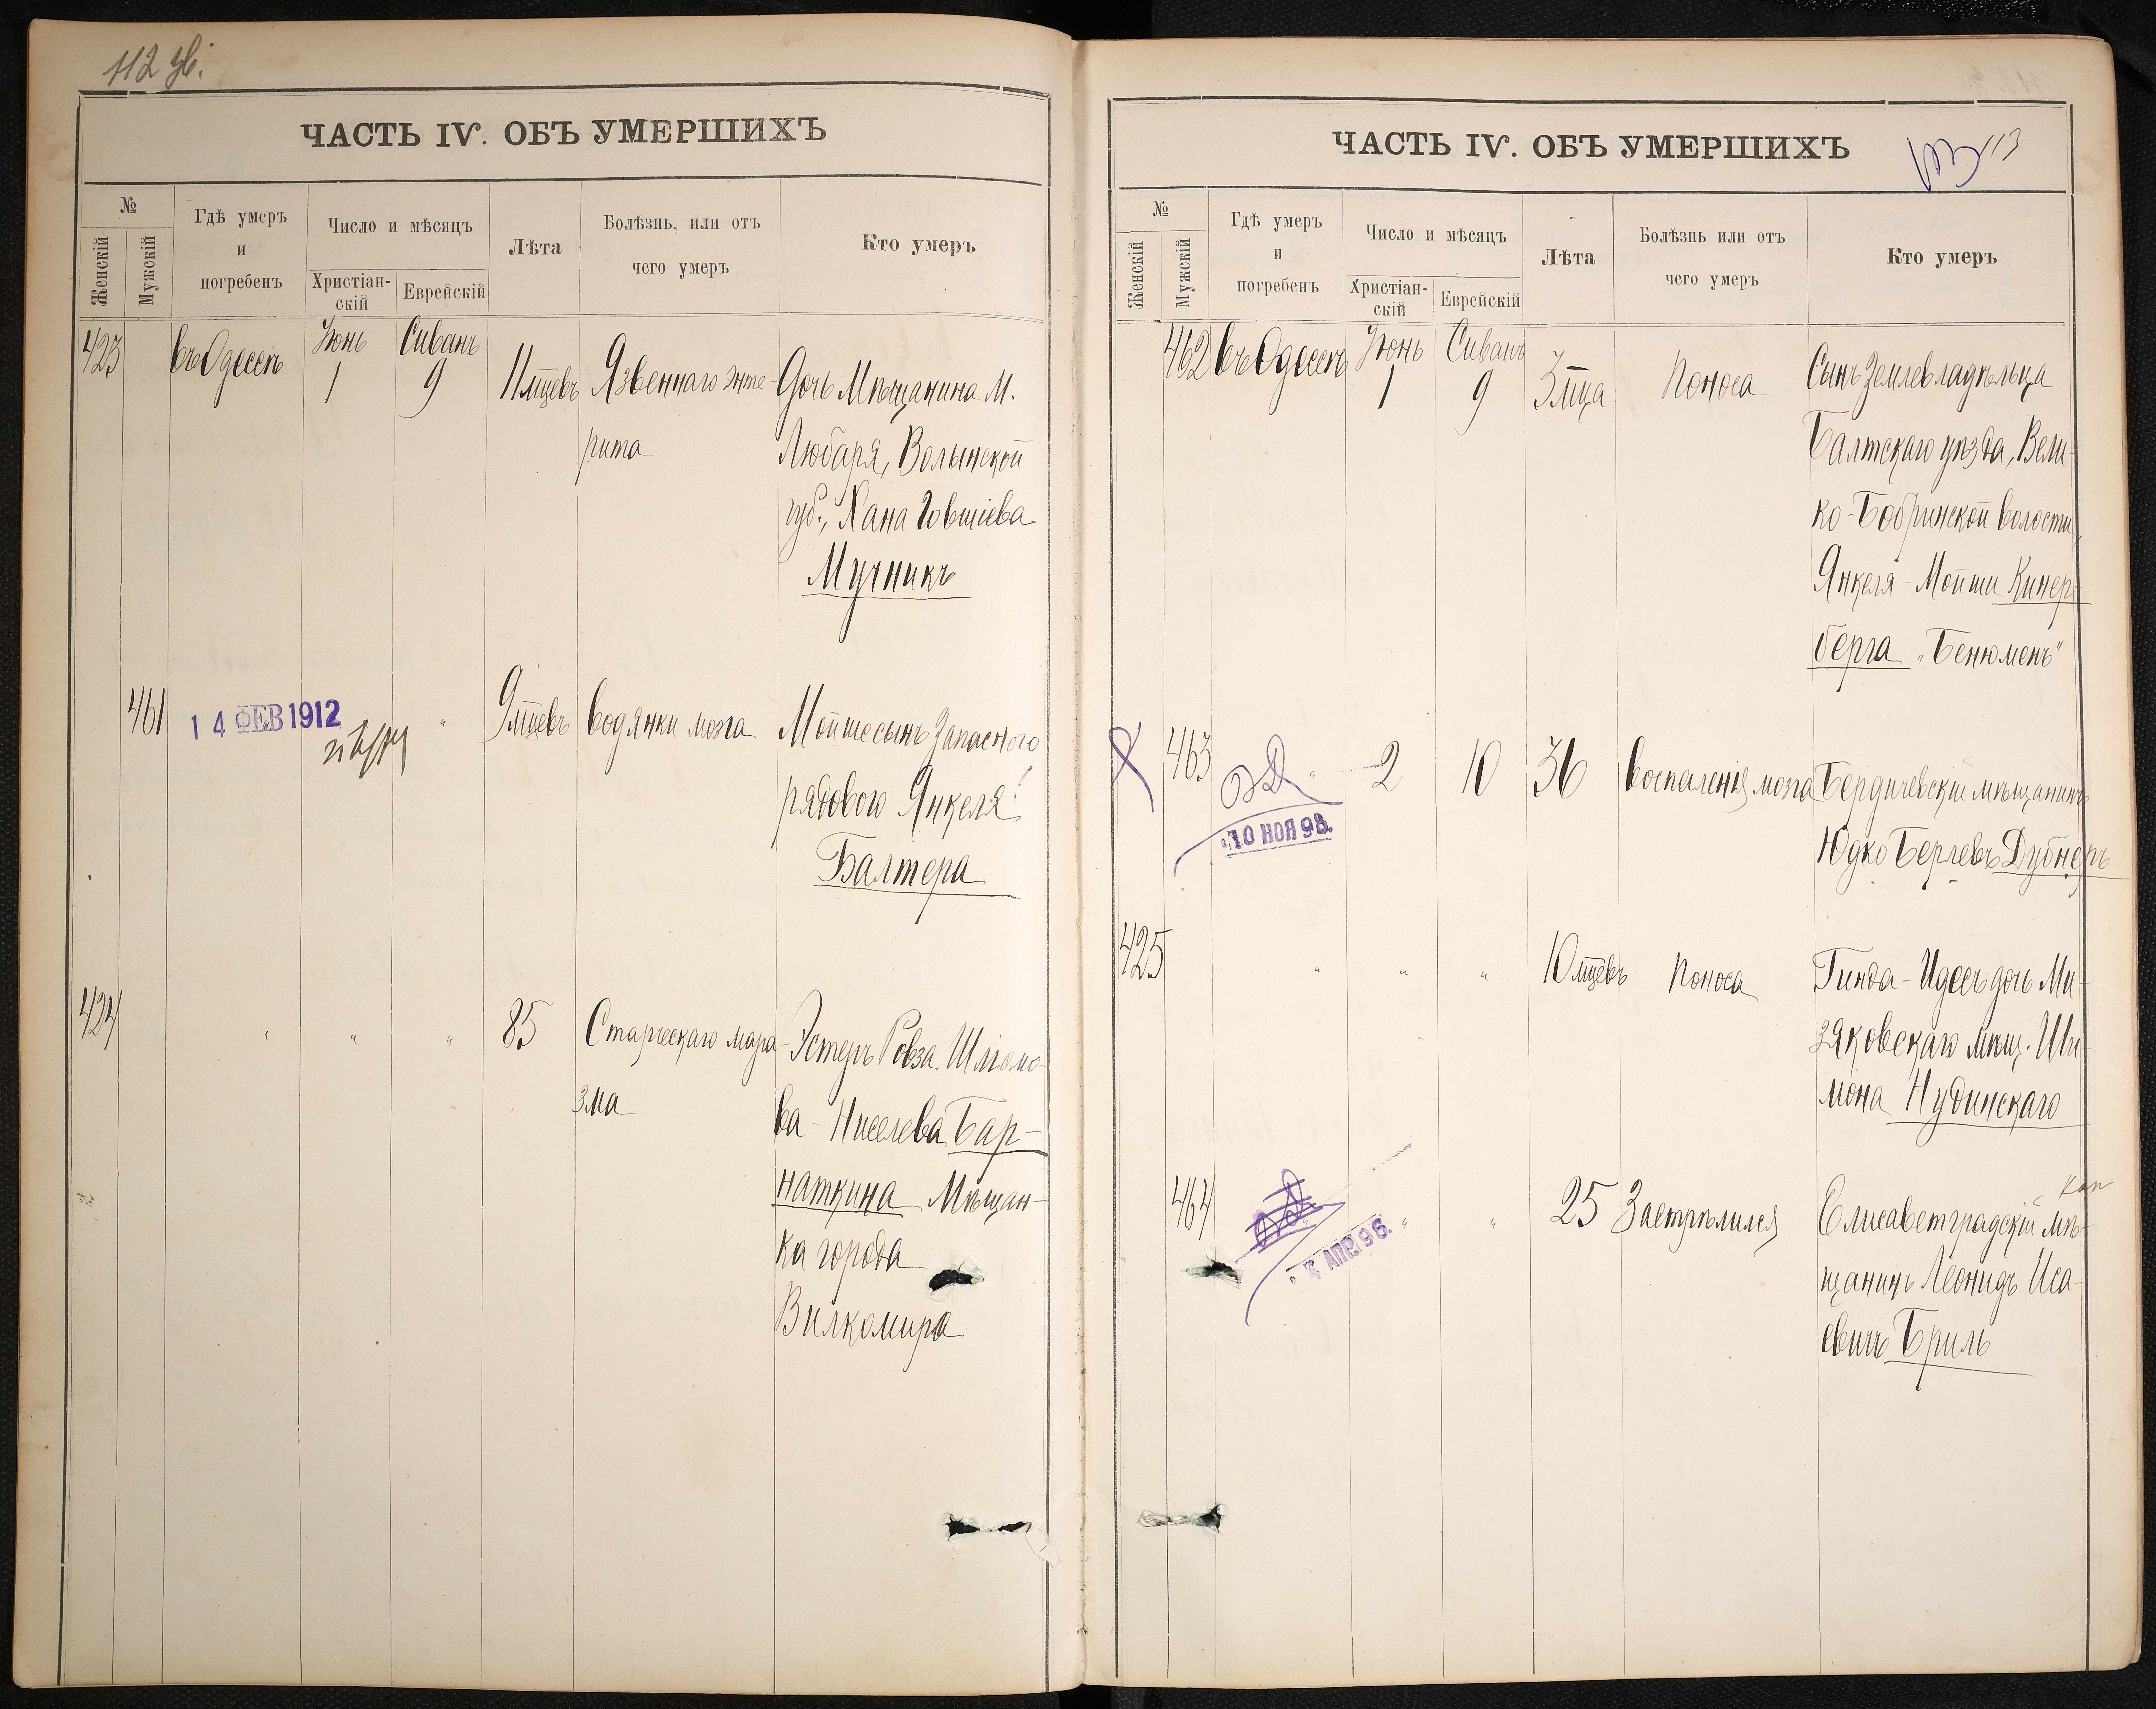 112 об.
ЧАСТЬ IV. ОБЪ УМЕРШИХЪ
№
Женскій
Мужскій
Гдѣ умеръ
и
погребенъ
Число и мѣсяцъ
Христіан-
скій
Еврейскій
Лѣта
Болѣзнь, или отъ
чего умеръ
Кто умеръ
423 въ Одессѣ Іюнь 1 Сиванъ 9 11 мцевъ Язвеннаго энте- Дочь Мѣщанина М.
рита Любаря, Волынской
губ., Хана Говшіева
Мучникъ
461 14 ФЕВ 1912 " 9 мцевъ водянки мозга Мойше сынъ Запасного
рядового Янкеля
Балтера
424 " " " 85 Старческаго мара- Эстеръ Ровза Шліомо-
зма ва - Киселева Бар-
наткина Мѣщан-
ка города
Вилкомира
ЧАСТЬ IV. ОБЪ УМЕРШИХЪ
113
№
Женскій
Мужскій
Гдѣ умеръ
и
погребенъ
Число и мѣсяцъ
Христіан-
скій
Еврейскій
Лѣта
Болѣзнь или отъ
чего умеръ
Кто умеръ
462 въ Одессѣ Іюнь 1 Сиванъ 9 3 мца Поноса Сынъ Землевладѣльца
Балтскаго уѣзда, Вели-
ко-Бобринской волости,
Янкеля-Мойши Кинер-
берга „Бенюменъ"
463 " 2 10 36 воспаленія мозга Бердичевскій мѣщанинъ
10 НОЯ 98.
Юдко Берлевъ Дубнеръ
425 " " " 10 мцевъ Поноса Гинда-Идесъ дочь Ми-
зяковскаго мѣщ. Ши-
мона Нудинскаго
464 " " 25 Застрѣлился Елисаветградскій мѣ-
АПР. 96.
щанинъ Леонидъ Иса-
евичъ Бриль